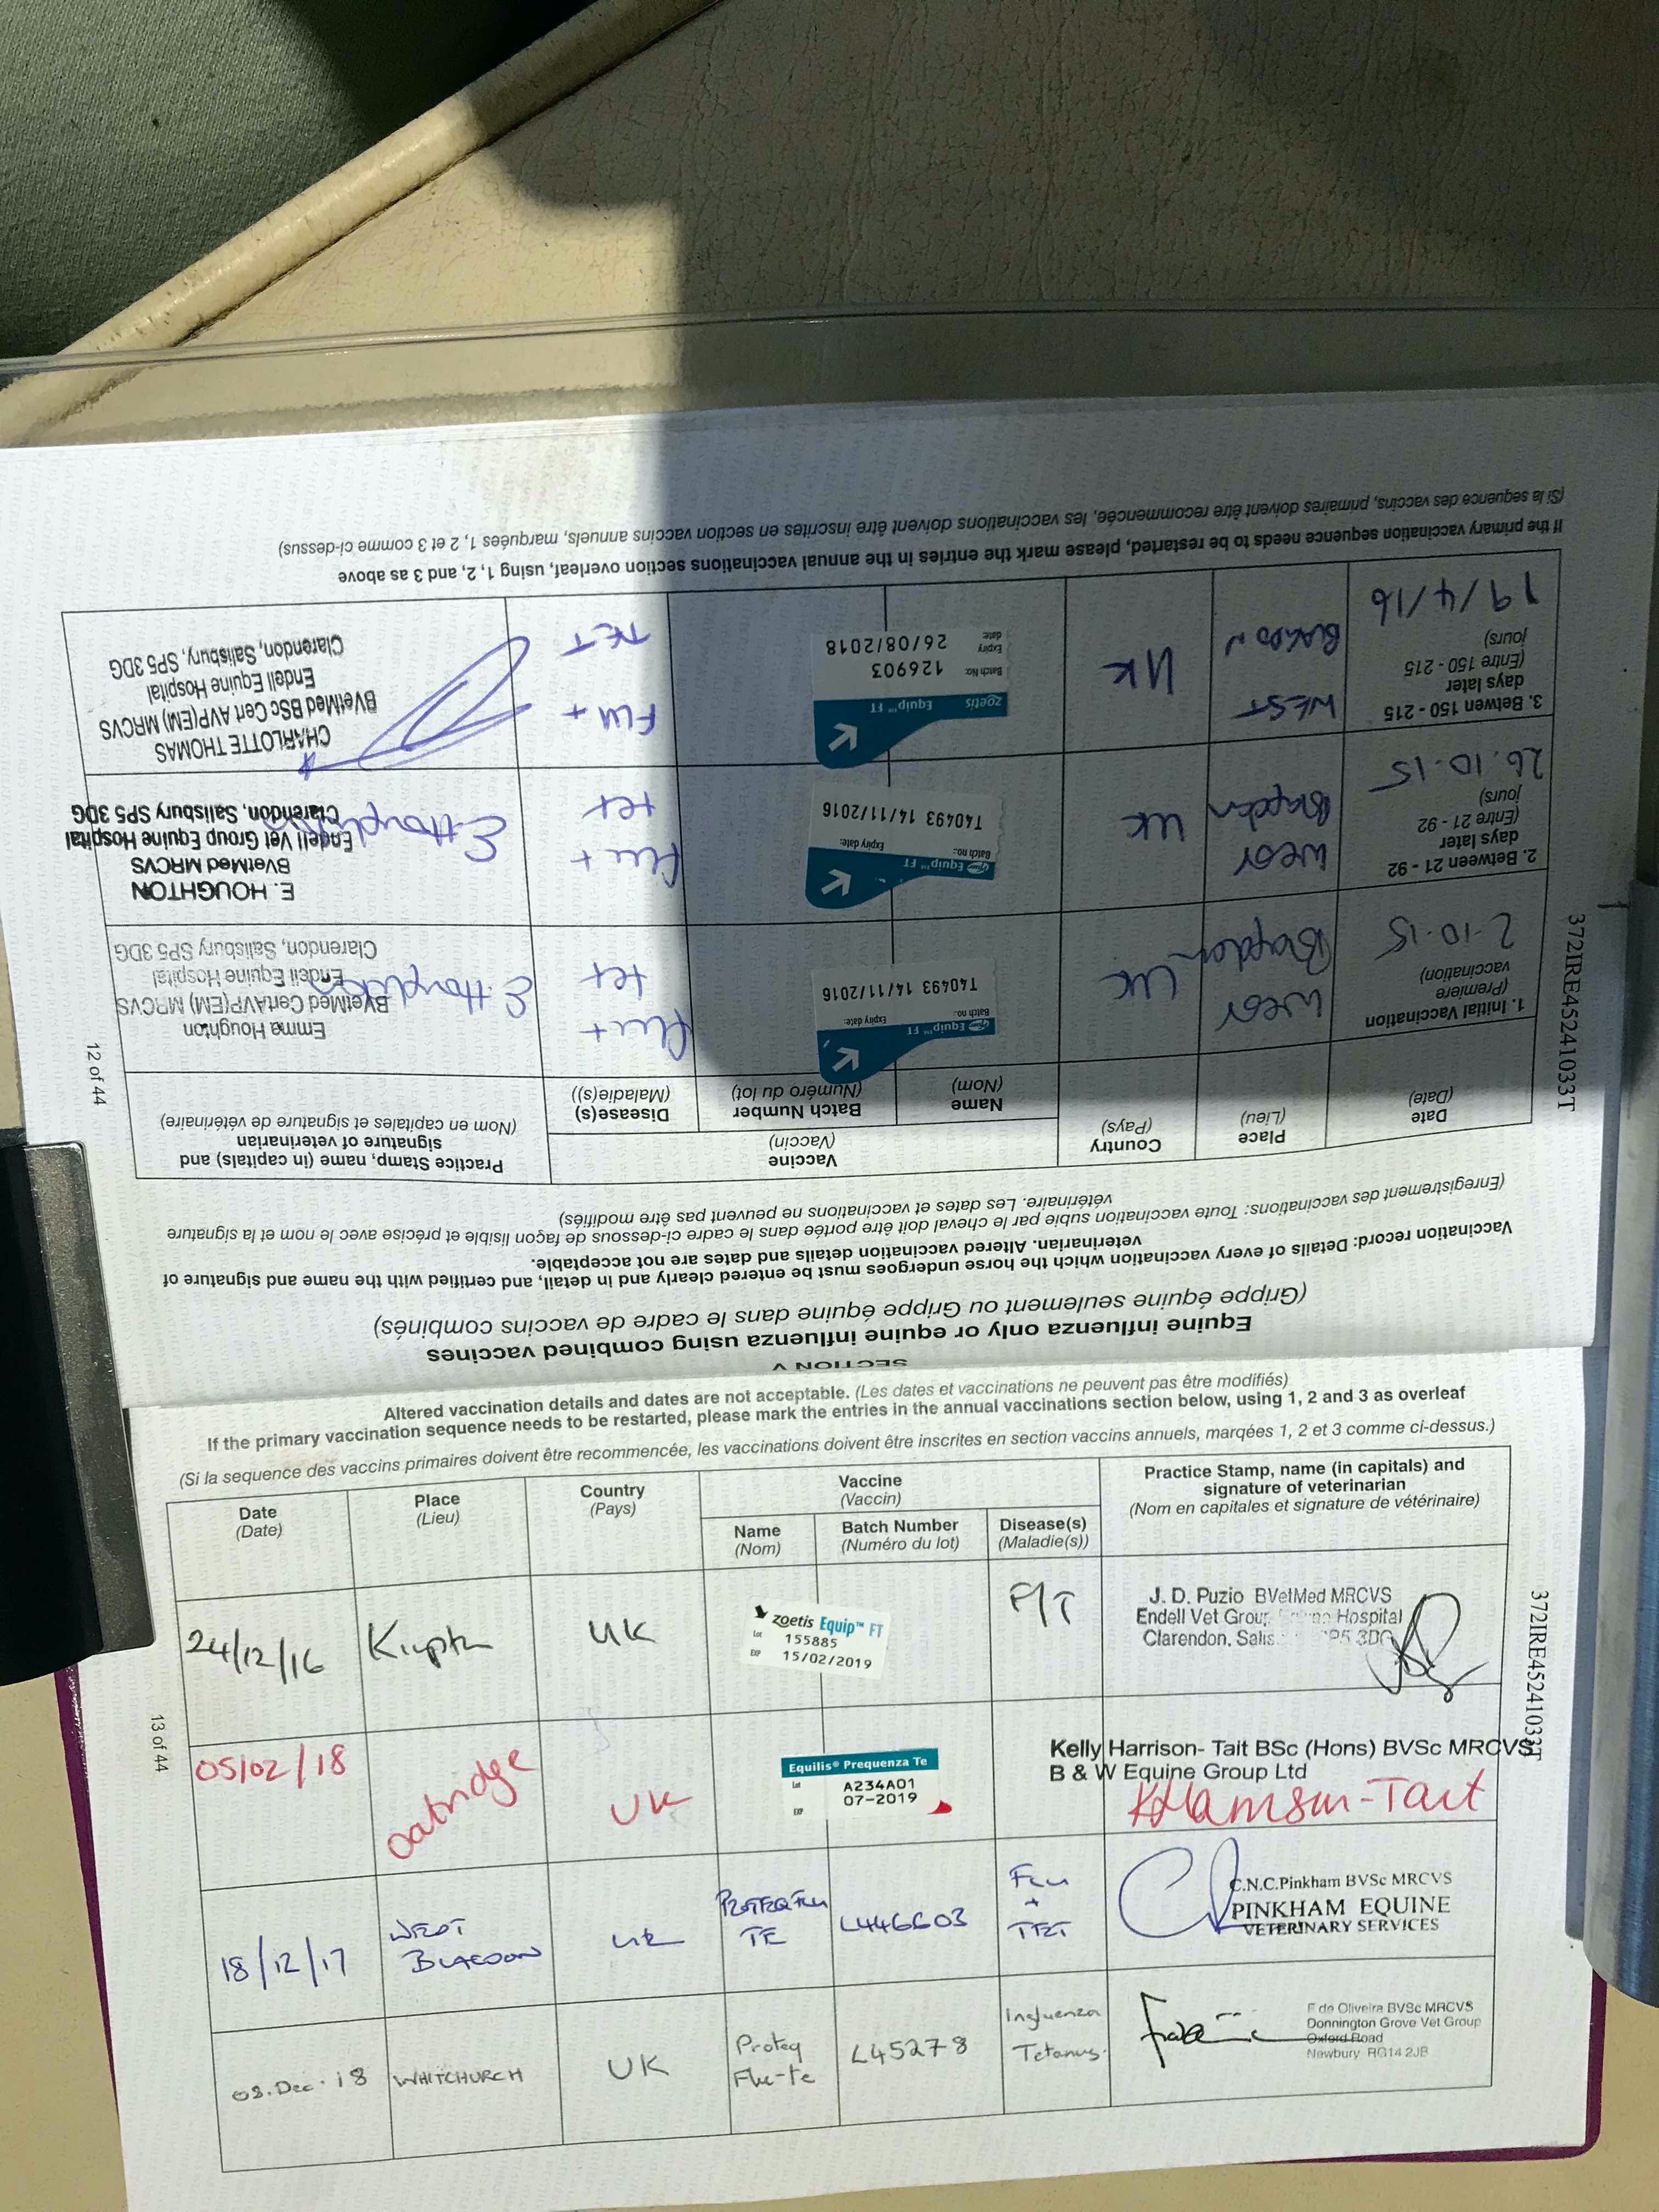 12 of 44
372IRE45241033T
SECTION V
Equine influenza only or equine influenza using combined vaccines
(Grippe équine seulement ou Grippe équine dans le cadre de vaccins combinés)
Vaccination record: Details of every vaccination which the horse undergoes must be entered clearly and in detail, and certified with the name and signature of
veterinarian. Altered vaccination details and dates are not acceptable.
(Enregistrement des vaccinations: Toute vaccination subie par le cheval doit être portée dans le cadre ci-dessous de façon lisible et précise avec le nom et la signature
vétérinaire. Les dates et vaccinations ne peuvent pas être modifiés)
Date
(Date)
Place
(Lieu)
Country
(Pays)
Vaccine
(Vaccin)
Name
(Nom)
Batch Number
(Numéro du lot)
Disease(s)
(Maladie(s))
Practice Stamp, name (in capitals) and
signature of veterinarian
(Nom en capitales et signature de vétérinaire)
1. Initial Vaccination
(Première
vaccination)
2.10.15
West
UK
Equip™ FT
Batch no.: Expiry date:
T40493 14/11/2016
flu +
tet
Emma Houghton
BVetMed CertAVP(EM) MRCVS
Endell Equine Hospital
Clarendon, Salisbury SP5 3DG
E. Houghton
2. Between 21 - 92
days later
(Entre 21 - 92
jours)
26.10.15
West
UK
Equip™ FT
Batch no.: Expiry date:
T40493 14/11/2016
flu +
tet
E. HOUGHTON
BVetMed MRCVS
Endell Vet Group Equine Hospital
Clarendon, Salisbury SP5 3DG
E. Houghton
3. Betwen 150 - 215
days later
(Entre 150 - 215
jours)
19/4/16
WEST
BLAGDON
UK
zoetis Equip™ FT
Batch No: 126903
Expiry date: 26/08/2018
FLU +
TET
CHARLOTTE THOMAS
BVetMed BSc Cert AVP(EM) MRCVS
Endell Equine Hospital
Clarendon, Salisbury, SP5 3DG
If the primary vaccination sequence needs to be restarted, please mark the entries in the annual vaccinations section overleaf, using 1, 2, and 3 as above
(Si la sequence des vaccins, primaires doivent être recommencée, les vaccinations doivent être inscrites en section vaccins annuels, marquées 1, 2 et 3 comme ci-dessus)
Altered vaccination details and dates are not acceptable. (Les dates et vaccinations ne peuvent pas être modifiés)
If the primary vaccination sequence needs to be restarted, please mark the entries in the annual vaccinations section below, using 1, 2 and 3 as overleaf
(Si la sequence des vaccins primaires doivent être recommencée, les vaccinations doivent être inscrites en section vaccins annuels, marqées 1, 2 et 3 comme ci-dessus.)
Date
(Date)
Place
(Lieu)
Country
(Pays)
Vaccine
(Vaccin)
Name
(Nom)
Batch Number
(Numéro du lot)
Disease(s)
(Maladie(s))
Practice Stamp, name (in capitals) and
signature of veterinarian
(Nom en capitales et signature de vétérinaire)
24/12/16
UK
zoetis Equip™ FT
Lot 155885
EXP 15/02/2019
F/T
J. D. Puzio BVetMed MRCVS
Endell Vet Group Hospital
Clarendon, 3DG
05/02/18
oatridge
UK
Equilis® Prequenza Te
Lot A234A01
EXP 07-2019
Kelly Harrison- Tait BSc (Hons) BVSc MRCVS
B & W Equine Group Ltd
KHarrison-Tait
18/12/17
WEST
BLAGDON
UK
PROTEQFLU
TE
L446603
FLU
+
TET
C.N.C.Pinkham BVSc MRCVS
PINKHAM EQUINE
VETERINARY SERVICES
03.Dec.18
WHITCHURCH
UK
Proteq
Flu-te
L45278
Influenza
Tetanus.
F de Oliveira BVSc MRCVS
Donnington Grove Vet Group
Oxford Road
Newbury RG14 2JB
13 of 44
372IRE45241033T